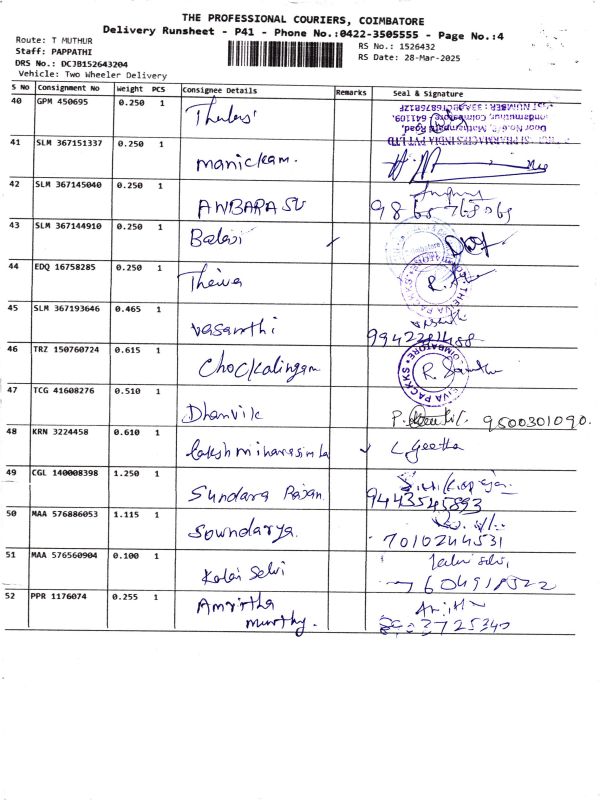 THE PROFESSIONAL COURIERS, COIMBATORE
Delivery Runsheet - P41 - Phone No.:0422-3505555 - Page No.:4
Route: T MUTHUR
RS No.: 1526432
Staff: PAPPATHI
RS Date: 28-Mar-2025
DRS No.: DCJB152643204
Vehicle: Two Wheeler Delivery
S No Consignment No Weight PCS Consignee Details Remarks Seal & Signature
40 GPM 450695 0.250 1
41 SLM 367151337 0.250 1 manickam.
42 SLM 367145040 0.250 1 ANBARASU
43 SLM 367144910 0.250 1 Balaji
44 EDQ 16758285 0.250 1 Theiva
45 SLM 367193646 0.465 1 vasanthi
46 TRZ 150760724 0.615 1 Chockalingam
47 TCG 41608276 0.510 1 Dhanvik 9500301090.
48 KRN 3224458 0.610 1 lakshminarasimha L Geetha
49 CGL 140008398 1.250 1 Sundara Rajan 9443545893
50 MAA 576886053 1.115 1 Soundarya 7010244531
51 MAA 576560904 0.100 1 Kalai Selvi
52 PPR 1176074 0.255 1 Amirtha
murthy.